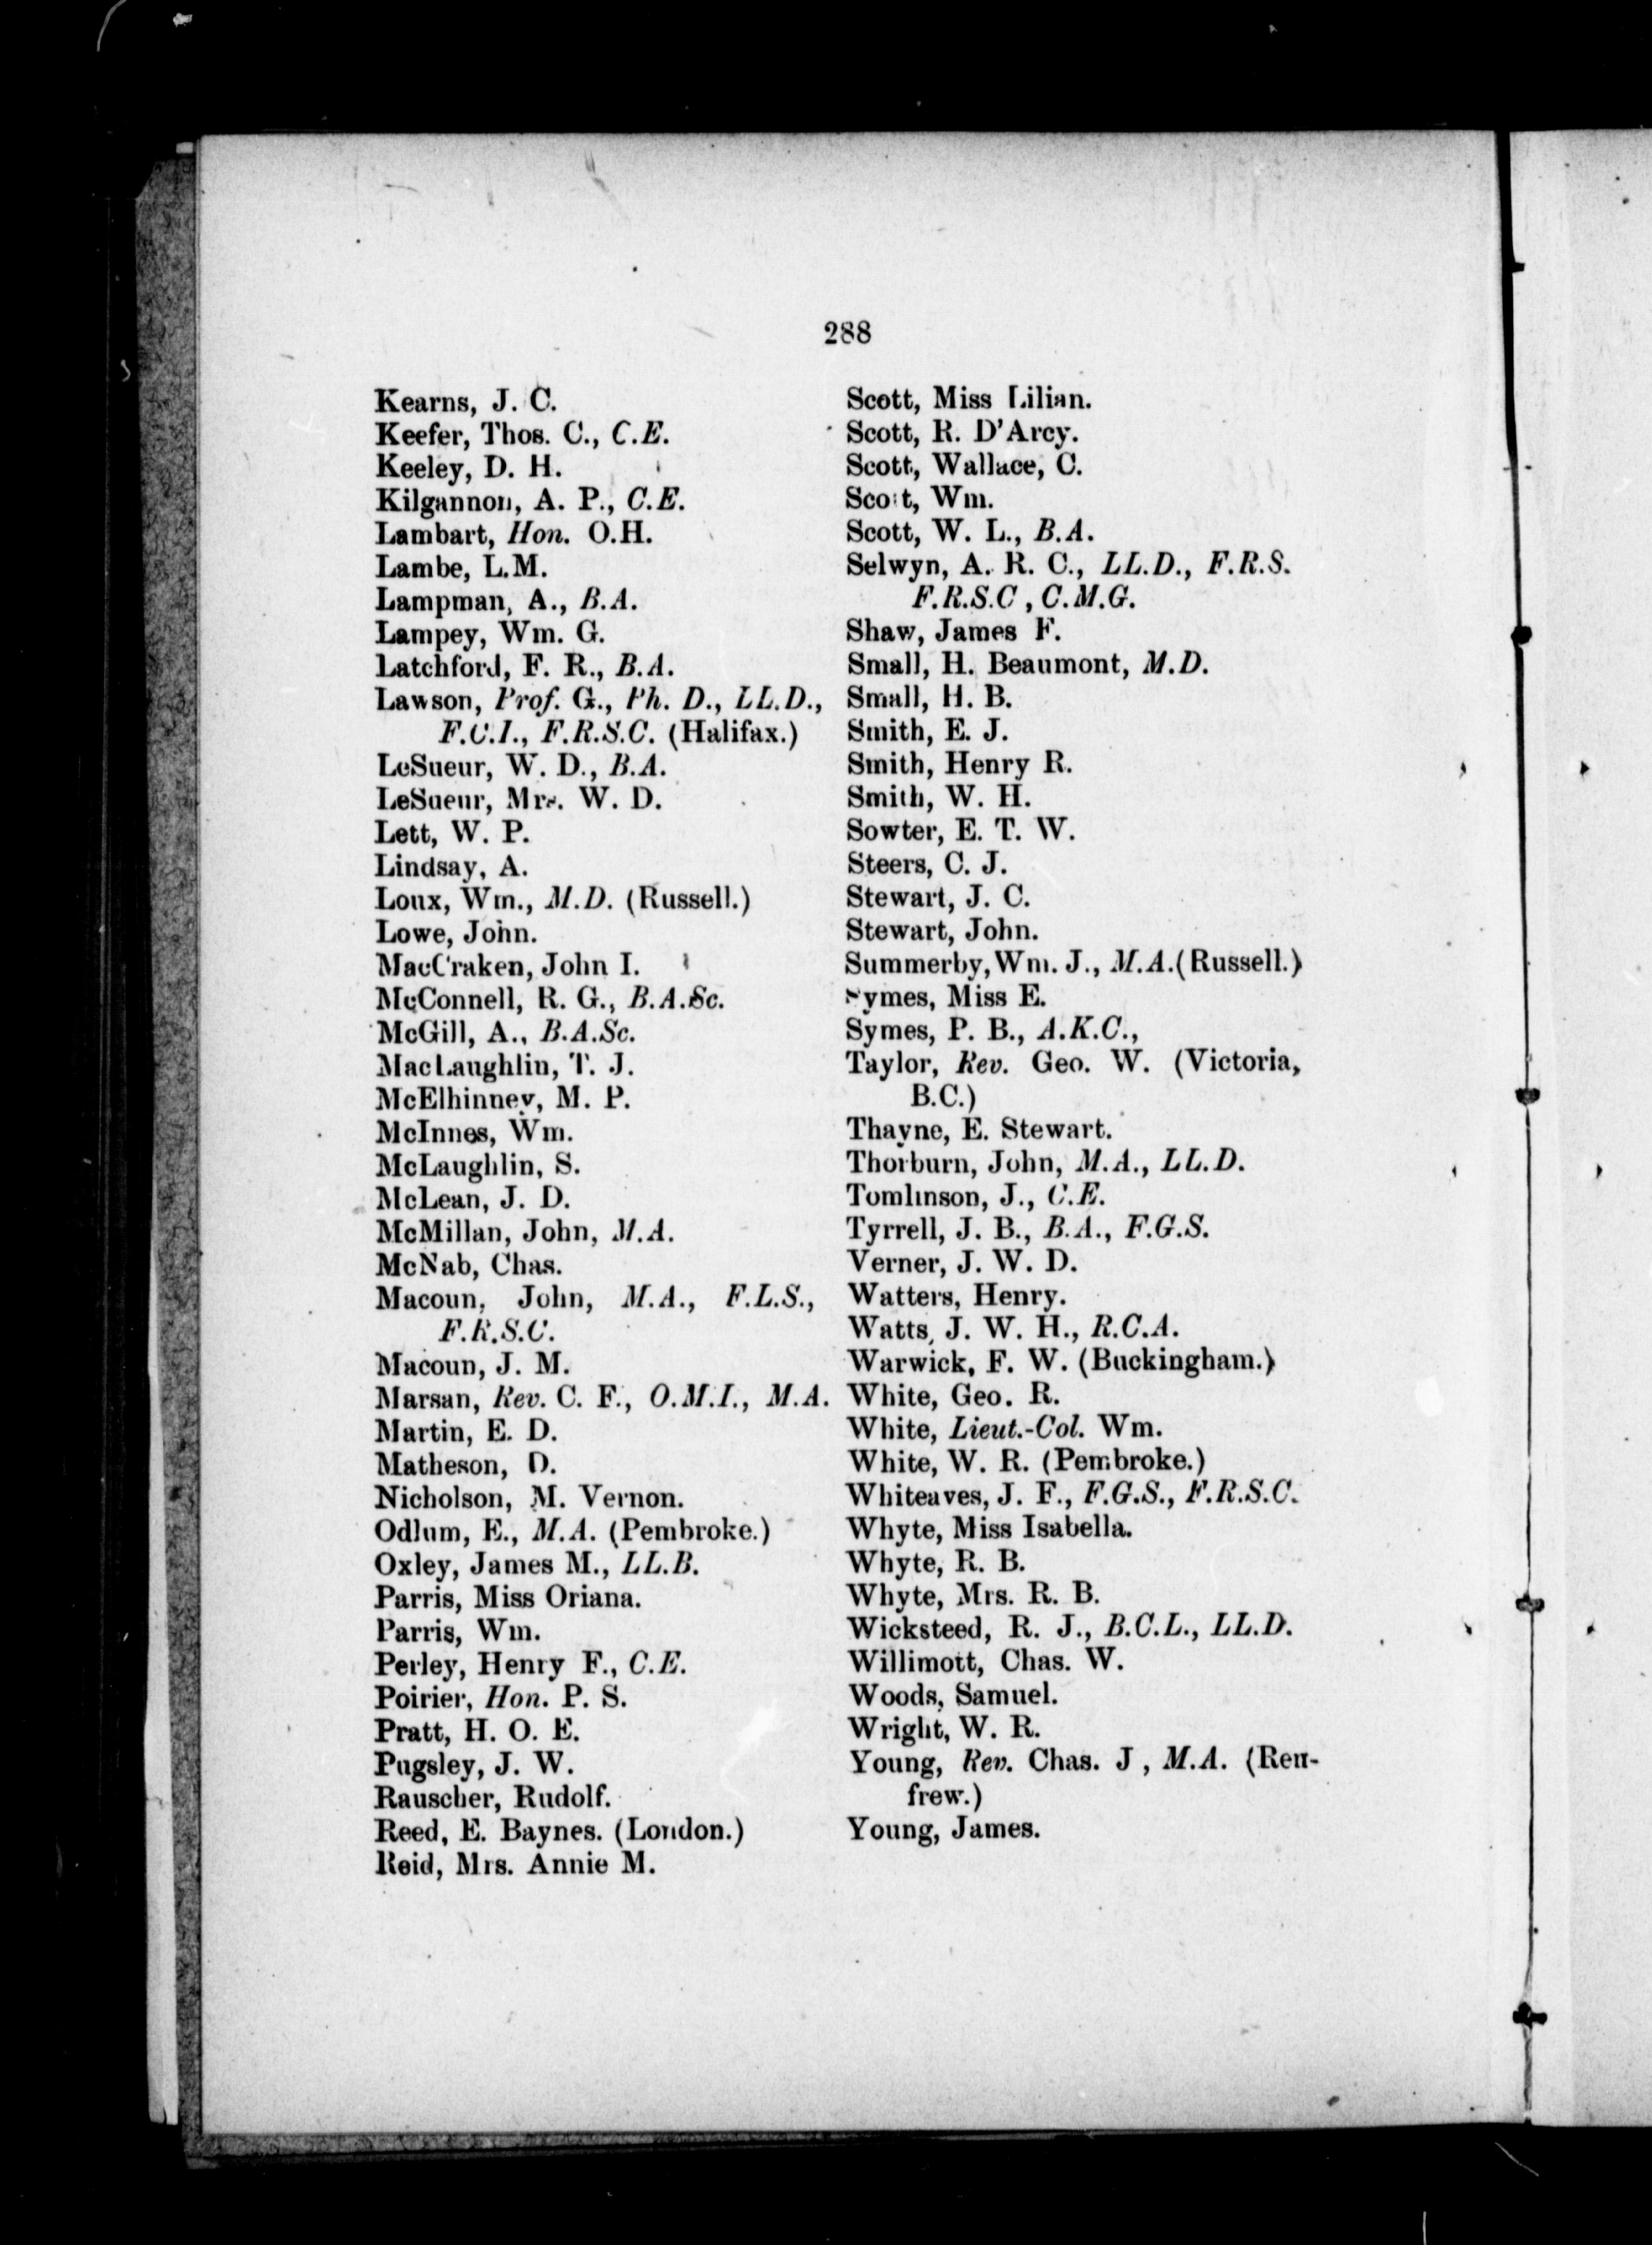 288
Kearns, J. C.
Keefer, Thos. C., C.E.
Keeley, D. H.
Kilgannon, A. P., C.E.
Lambart, Hon. O.H.
Lambe, L.M.
Lampman, A., B.A.
Lampey, Wm. G.
Latchford, F. R., B.A.
Lawson, Prof. G., Ph. D., LL.D.,
F.C.I., F.R.S.C. (Halifax.)
LeSueur, W. D., B.A.
LeSueur, Mrs. W. D.
Lett, W. P.
Lindsay, A.
Loux, Wm., M.D. (Russell.)
Lowe, John.
MacCraken, John I.
McConnell, R. G., B.A.Sc.
McGill, A., B.A.Sc.
MacLaughlin, T. J.
McElhinney, M. P.
McInnes, Wm.
McLaughlin, S.
McLean, J. D.
McMillan, John, M.A.
McNab, Chas.
Macoun, John, M.A., F.L.S.,
F.R.S.C.
Macoun, J. M.
Marsan, Rev. C. F., O.M.I., M.A.
Martin, E. D.
Matheson, D.
Nicholson, M. Vernon.
Odlum, E., M.A. (Pembroke.)
Oxley, James M., LL.B.
Parris, Miss Oriana.
Parris, Wm.
Perley, Henry F., C.E.
Poirier, Hon. P. S.
Pratt, H. O. E.
Pugsley, J. W.
Rauscher, Rudolf.
Reed, E. Baynes. (London.)
Reid, Mrs. Annie M.
Scott, Miss Lilian.
Scott, R. D'Arcy.
Scott, Wallace, C.
Scott, Wm.
Scott, W. L., B.A.
Selwyn, A. R. C., LL.D., F.R.S.
F.R.S.C , C.M.G.
Shaw, James F.
Small, H. Beaumont, M.D.
Small, H. B.
Smith, E. J.
Smith, Henry R.
Smith, W. H.
Sowter, E. T. W.
Steers, C. J.
Stewart, J. C.
Stewart, John.
Summerby, Wm. J., M.A. (Russell.)
Symes, Miss E.
Symes, P. B., A.K.C.,
Taylor, Rev. Geo. W. (Victoria,
B.C.)
Thayne, E. Stewart.
Thorburn, John, M.A., LL.D.
Tomlinson, J., C.E.
Tyrrell, J. B., B.A., F.G.S.
Verner, J. W. D.
Watters, Henry.
Watts, J. W. H., R.C.A.
Warwick, F. W. (Buckingham.)
White, Geo. R.
White, Lieut.-Col. Wm.
White, W. R. (Pembroke.)
Whiteaves, J. F., F.G.S., F.R.S.C.
Whyte, Miss Isabella.
Whyte, R. B.
Whyte, Mrs. R. B.
Wicksteed, R. J., B.C.L., LL.D.
Willimott, Chas. W.
Woods, Samuel.
Wright, W. R.
Young, Rev. Chas. J , M.A. (Ren-
frew.)
Young, James.